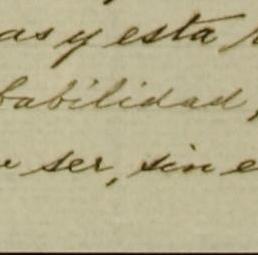 as y esta
babilidad,
ser, sin e